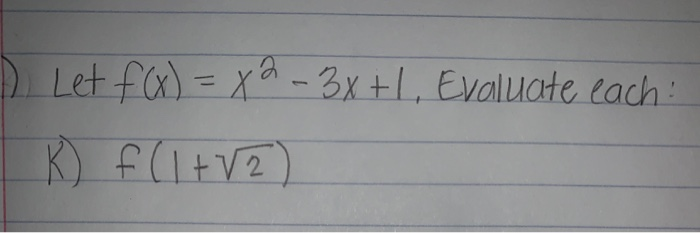 ) Let f(x) = x² - 3x + 1. Evaluate each:
K) f(1+√2)